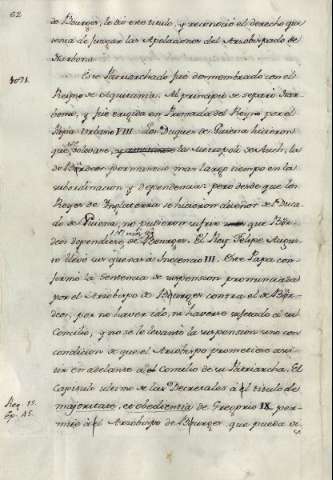 62
de Bourges, le dió este titulo, y reconoció el derecho que
tenia de juzgar las Apelaciones del Arzobispado de
Narbona.
Este Patriarchado fué desmembrado con el
Reyno de Aquitania. Al principio se separó Nar
bona, y fué erigida en Primada del Reyno por el
Papa Urbano VIII. Los Duques de Guiena hicieron
que Toledo la Metropoli de Auch, la
de Bordeos permaneció mas largo tiempo en la
subordinacion, y dependencia; pero desde que los
Reyes de Inglaterra se hicieron dueños de el Duca
do de Guiena, no pudieron sufrir que Bor
deos dependiese de Bourges. El Rey Felipe Augus
to llevó sus quexas à Inocencio III. Este Papa con
firmó la sentencia de suspension pronunciada
por el Arzobispo de Bourges contra el de Bor
deos, por no haver ido, ni haverse escusado à su
Concilio, y no se le levantó la suspension sino con
condicion de que el Arzobispo prometiese asis
tir en adelante à el Concilio de su Patriarcha. El
Capitulo ultimo de las Decretales à el titulo de
majoritate, et obedientia de Gregorio IX per
mite à el Arzobispo de Bourges que pueda vi
Reg. 13.
Ep. 45.